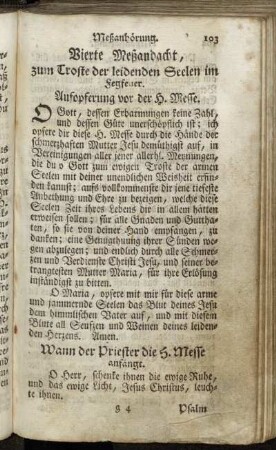 Meßanhörung. 103
Vierte Meßandacht,
zum Troste der leidenden Seelen im
Fegfeuer.
Aufopferung vor der H. Messe.
O Gott, dessen Erbarmungen keine Zahl,
und dessen Güte unerschöpflich ist; ich
opfere dir diese H. Messe durch die Hände der
schmerzhaften Mutter Jesu demüthigst auf, in
Vereinigungen aller jener allerhl. Meynungen,
die du o Gott zum ewigen Troste der armen
Seelen mit deiner unendlichen Weisheit erfin-
den kannst; aufs vollkommenste dir jene tiefeste
Anbethung und Ehre zu bezeigen, welche diese
Seelen Zeit ihres Lebens dir in allem hätten
erweisen sollen; für alle Gnaden und Gutthä-
ten, so sie von deiner Hand empfangen, zu
danken; eine Genugthuung ihrer Sünden we-
gen abzulegen; und endlich durch alle Schmer-
zen und Verdienste Christi Jesu, und seiner be-
trangtesten Mutter Maria, für ihre Erlösung
inständigst zu bitten.
O Maria, opfere mit mir für diese arme
und jammernde Seelen das Blut deines Jesu
dem himmlischen Vater auf, und mit diesem
Blute all Seufzen und Weinen deines leiden-
den Herzens. Amen.
Wann der Priester die H. Messe
anfängt.
O Herr, schenke ihnen die ewige Ruhe,
und das ewige Licht, Jesus Christus, leuch-
te ihnen.
G 4 Psalm